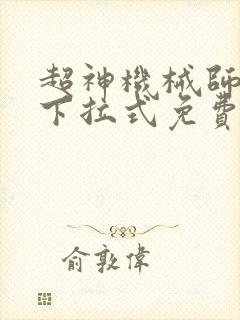 超神機械師
下拉式免費
俞敦偉